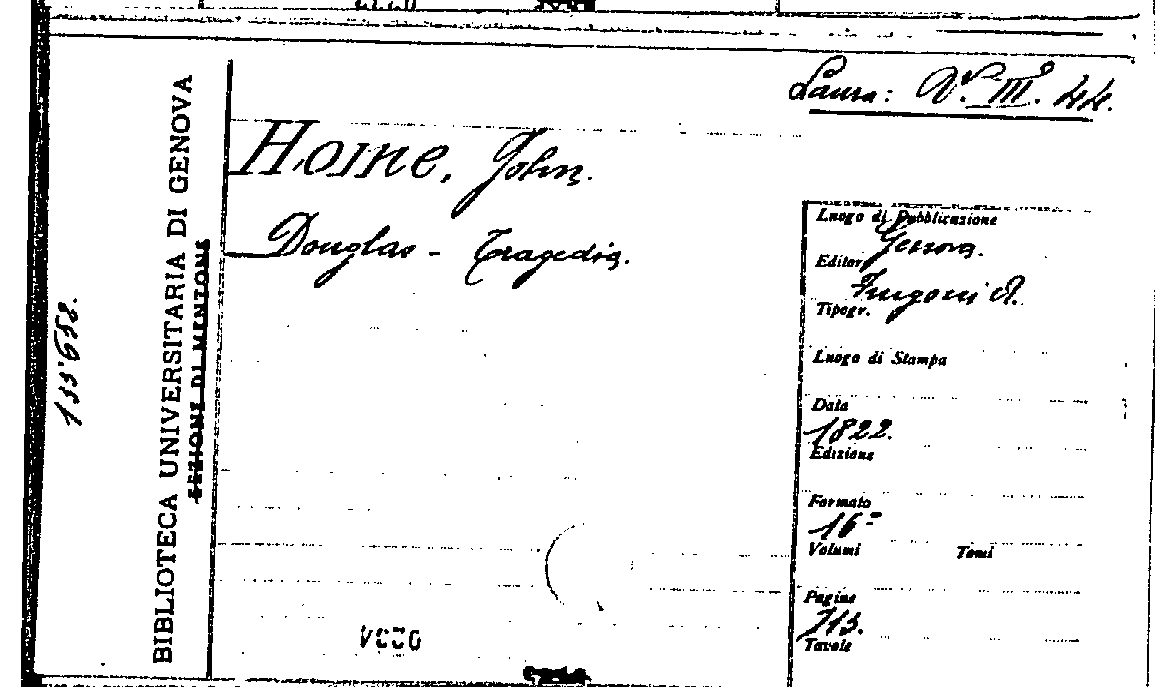 Laura: V. III. 44.
Home, John.
Douglas - Tragedia.
BIBLIOTECA UNIVERSITARIA DI GENOVA
SEZIONE DI MENTONE
155.952.
Luogo di Pubblicazione
Genova.
Editore
Frugoni A.
Tipogr.
Luogo di Stampa
Data
1822.
Edizione
Formato
16=
Volumi Tomi
Pagine
113.
Tavole